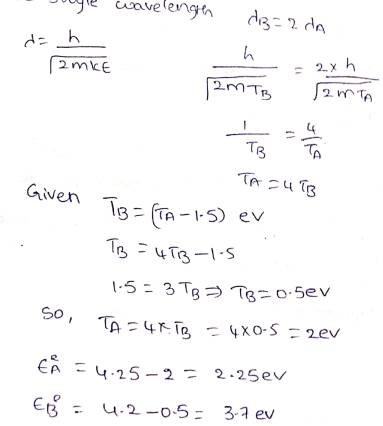 wavelength dB = 2 dA
d = h / √2mKE
h / √2mTB = 2 × h / √2mTA
1 / TB = 4 / TA
TA = 4TB
Given TB = (TA - 1.5) ev
TB = 4TB - 1.5
1.5 = 3TB ⇒ TB = 0.5ev
So, TA = 4 × TB = 4 × 0.5 = 2ev
= 4.25 - 2 = 2.25ev
= 4.2 - 0.5 = 3.7 ev